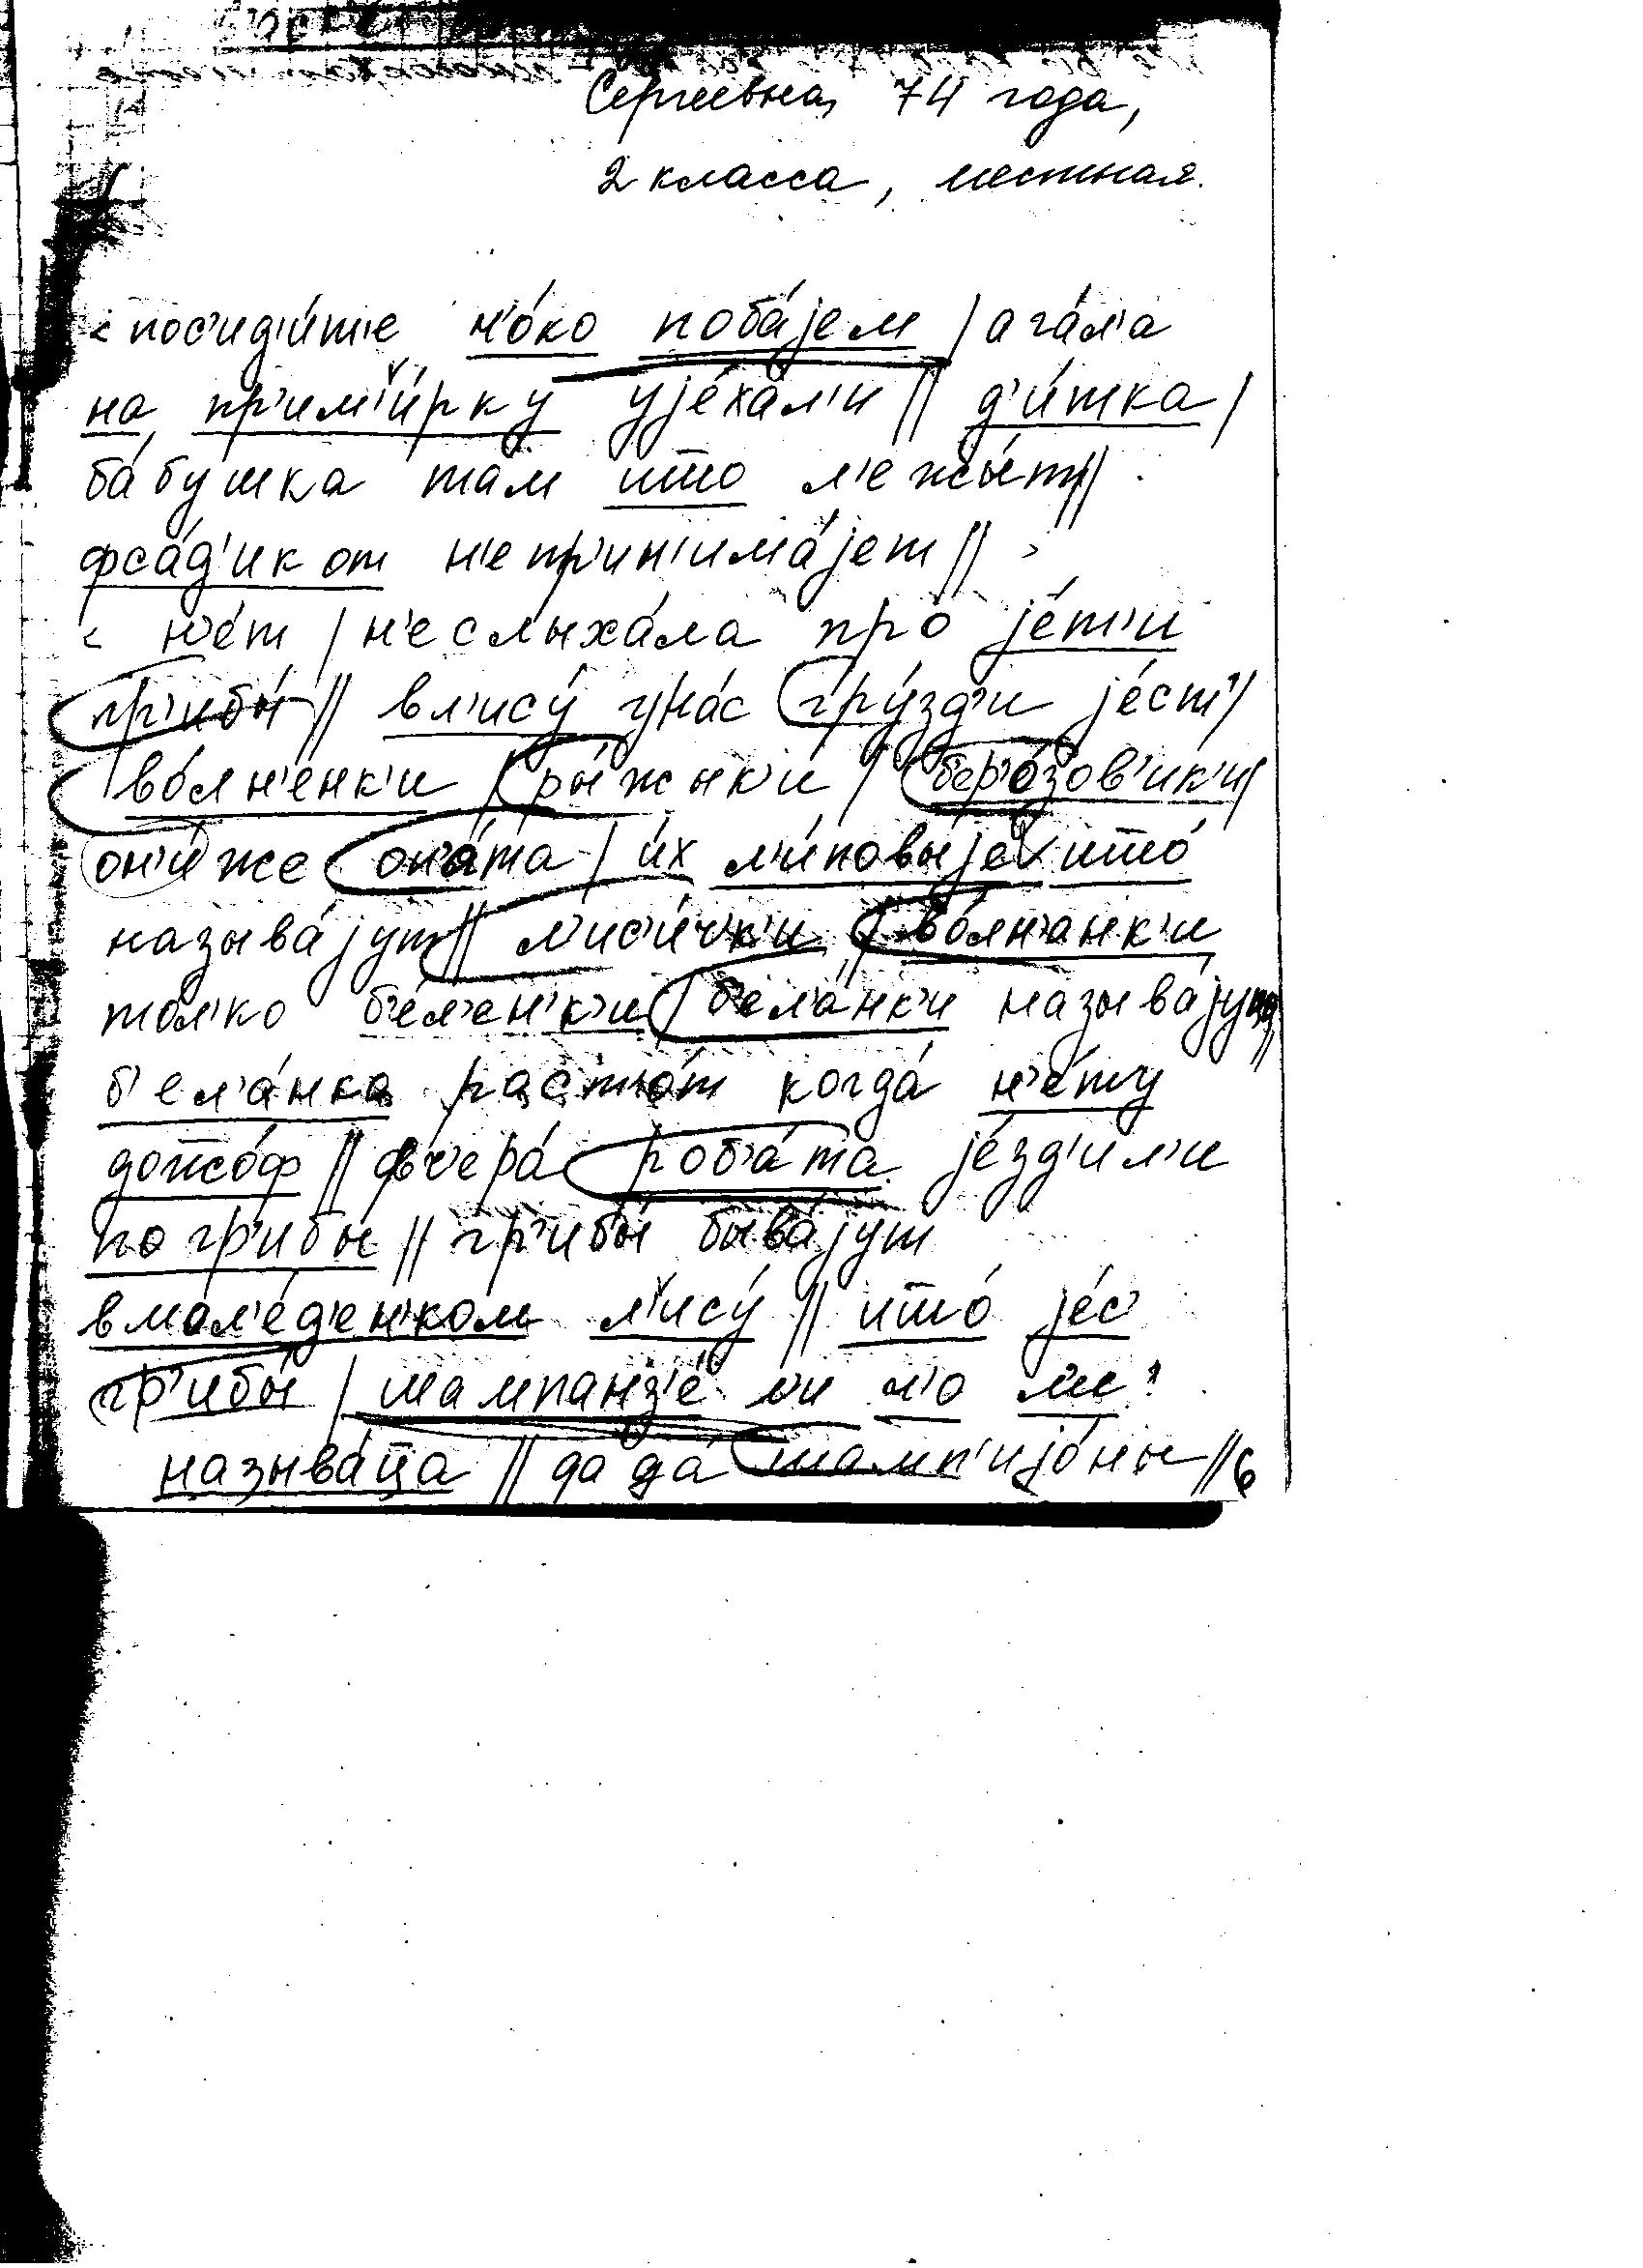 Сергеевна, 74 года,
2 класса, местная.
< пос'ид'и́т'е н'о́ко поба́јем / а га́л'а
на пр'им'и́рку ује́хал'и // д'и́тка /
ба́бушка там што л'ежы́т //
фса́д'ик от н'е пр'ин'има́јет // >
< н'е́т / н'е слыха́ла про је́т'и
гр'ибы́ // вл'ису́ уна́с гру́зд'и је́ст' /
во́лн'енк'и / ры́жык'и / б'ер'о́зов'ик'и /
он'и́ же оп'а́та / и́х л'и́повыје што́
называ́јут // л'ис'и́чк'и // во́лн'анк'и
тол'ко б'е́л'ен'к'и / б'ел'а́нк'и называ́јут //
б'ел'а́нка раст'о́т когда́ н'е́ту
дождо́ф // фч'ера́ роб'а́та је́зд'ил'и
по гр'ибы́ // гр'ибы́ быва́јут
вмол'о́д'ен'ком л'ису́ // што́ је́с'
гр'ибы́ / шампанз'е́ л'и л'о л'и?
называ́ца // да да́ шамп'ијо́ны //